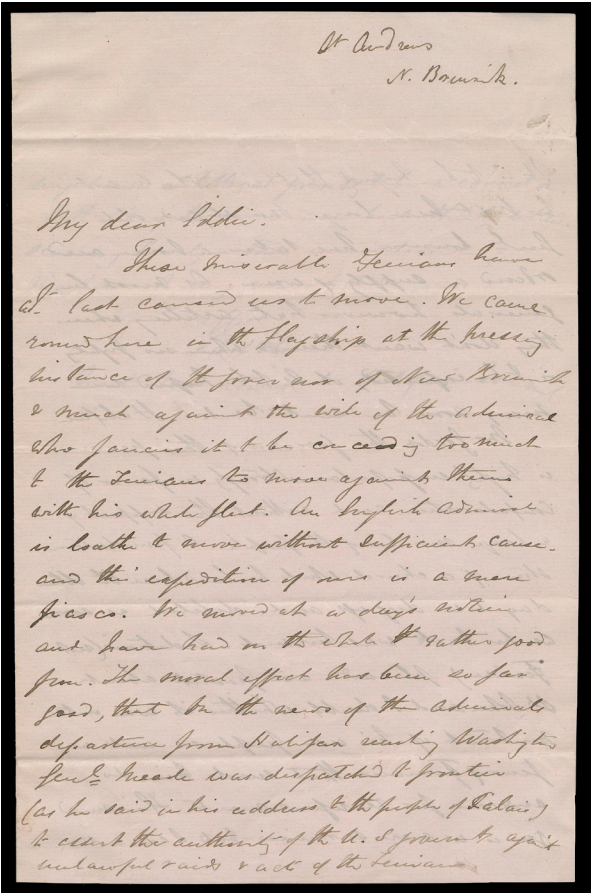 St Andrews
N. Brunsik.
My dear Eddie.
These miserable Fenians have
at last caused us to move. We came
round here in the flagship at the pressing
instance of the governor of New Brunsik
& much against the will of the Admiral
who fancies it to be conceding too much
to the Fenians to move against them
with his whole fleet. An English Admiral
is loathe to move without sufficient cause.
and this expedition of ours is a mere
fiasco. We moved at a day's notice
and have had on the whole rather good
fun. The moral effect has been so far
good, that on the news of the Admirals
departure from Halifax reaching Washington
Genl Meade was despatched to frontier
(as he said in his address to the people of Calais)
to assert the authority of the U.S government against
unlawful raids & acts of the Fenians.